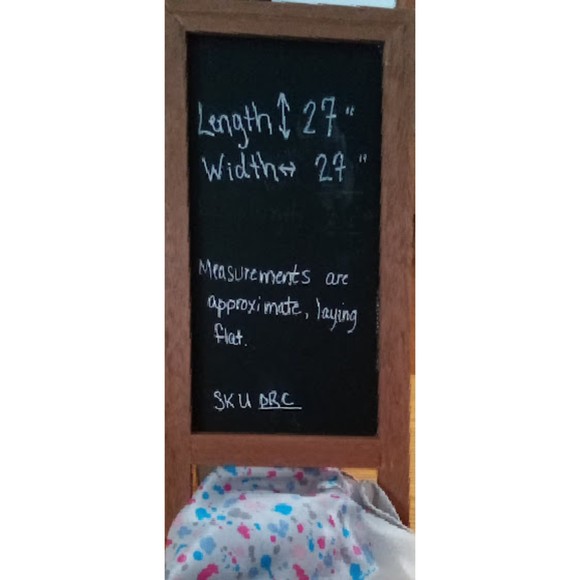 Length ↕ 27"
Width ↔ 27"
Measurements are
approximate, laying
flat.
SKU DRC